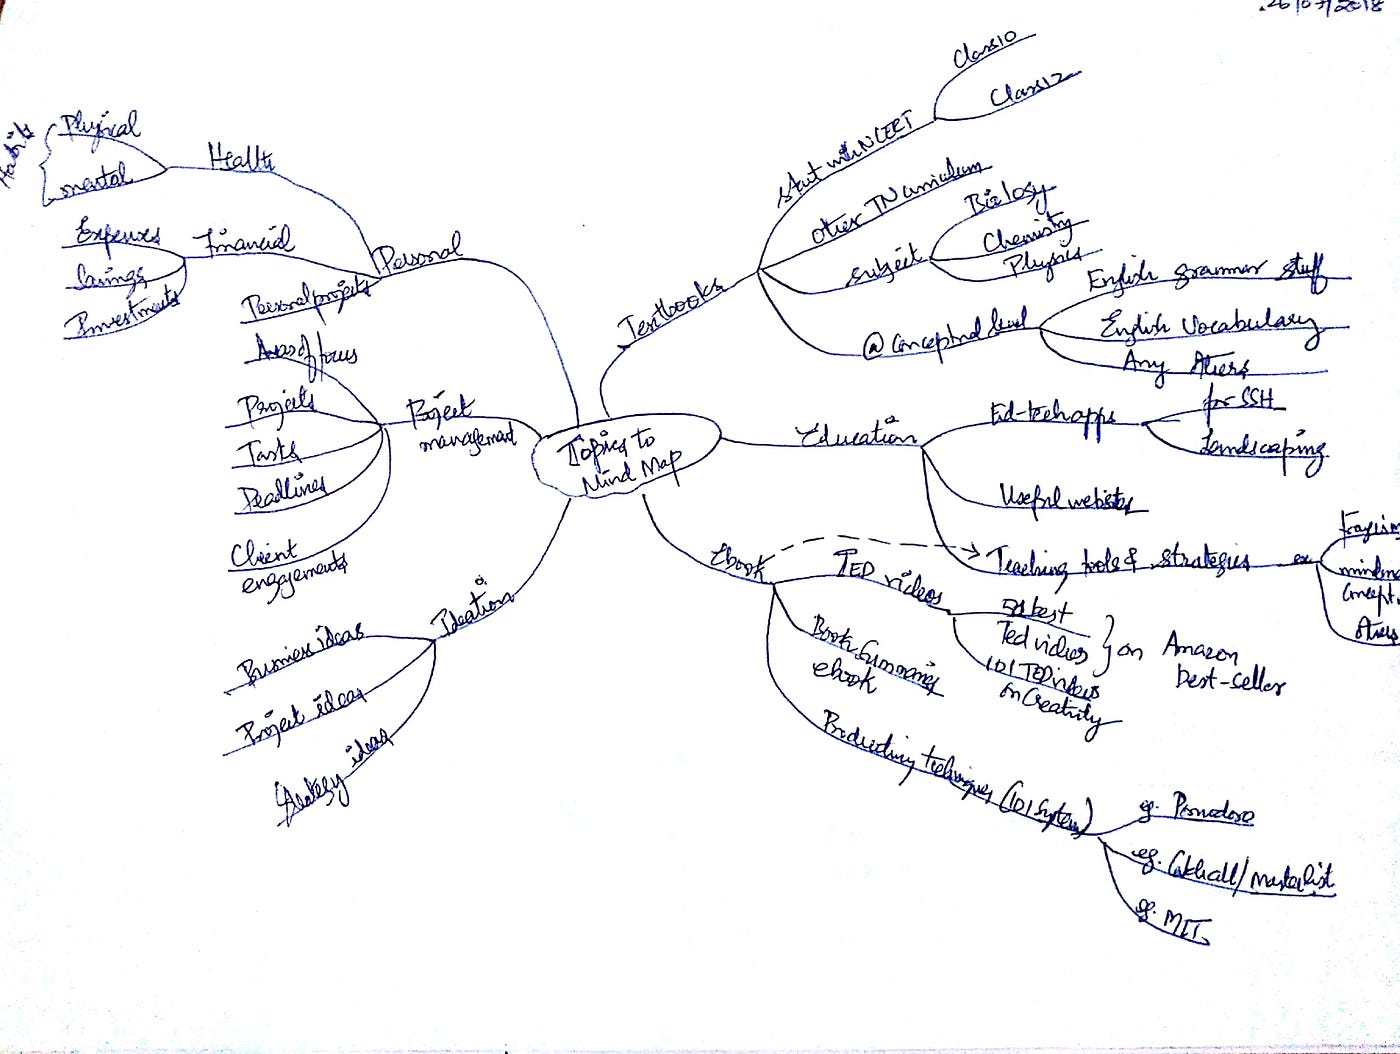 26/07/2018
Topics to
Mind Map
Textbooks
Start with NCERT
Class 10
Class 12
Other TN curriculum
Subject
Biology
Chemistry
Physics
@ Conceptual level
English grammar stuff
English Vocabulary
Any Others
Education
Ed-tech apps
for SSH
Landscaping
Useful websites
Teaching tools & strategies
ex
mindma
Concept
Others
Ebook
TED videos
50 best
Ted videos
101 TED videos
on Creativity
on Amazon
best-seller
Book Summaries
ebook
Productivity techniques (101 Systems)
eg. Pomodoro
eg. Catchall/masterlist
eg. MITs
Ideation
Business ideas
Project ideas
Strategy ideas
Project
management
Areas of focus
Projects
Tasks
Deadlines
Client
engagements
Personal
Health
Physical
mental
Habits
Financial
Expenses
Savings
Investments
Personal projects